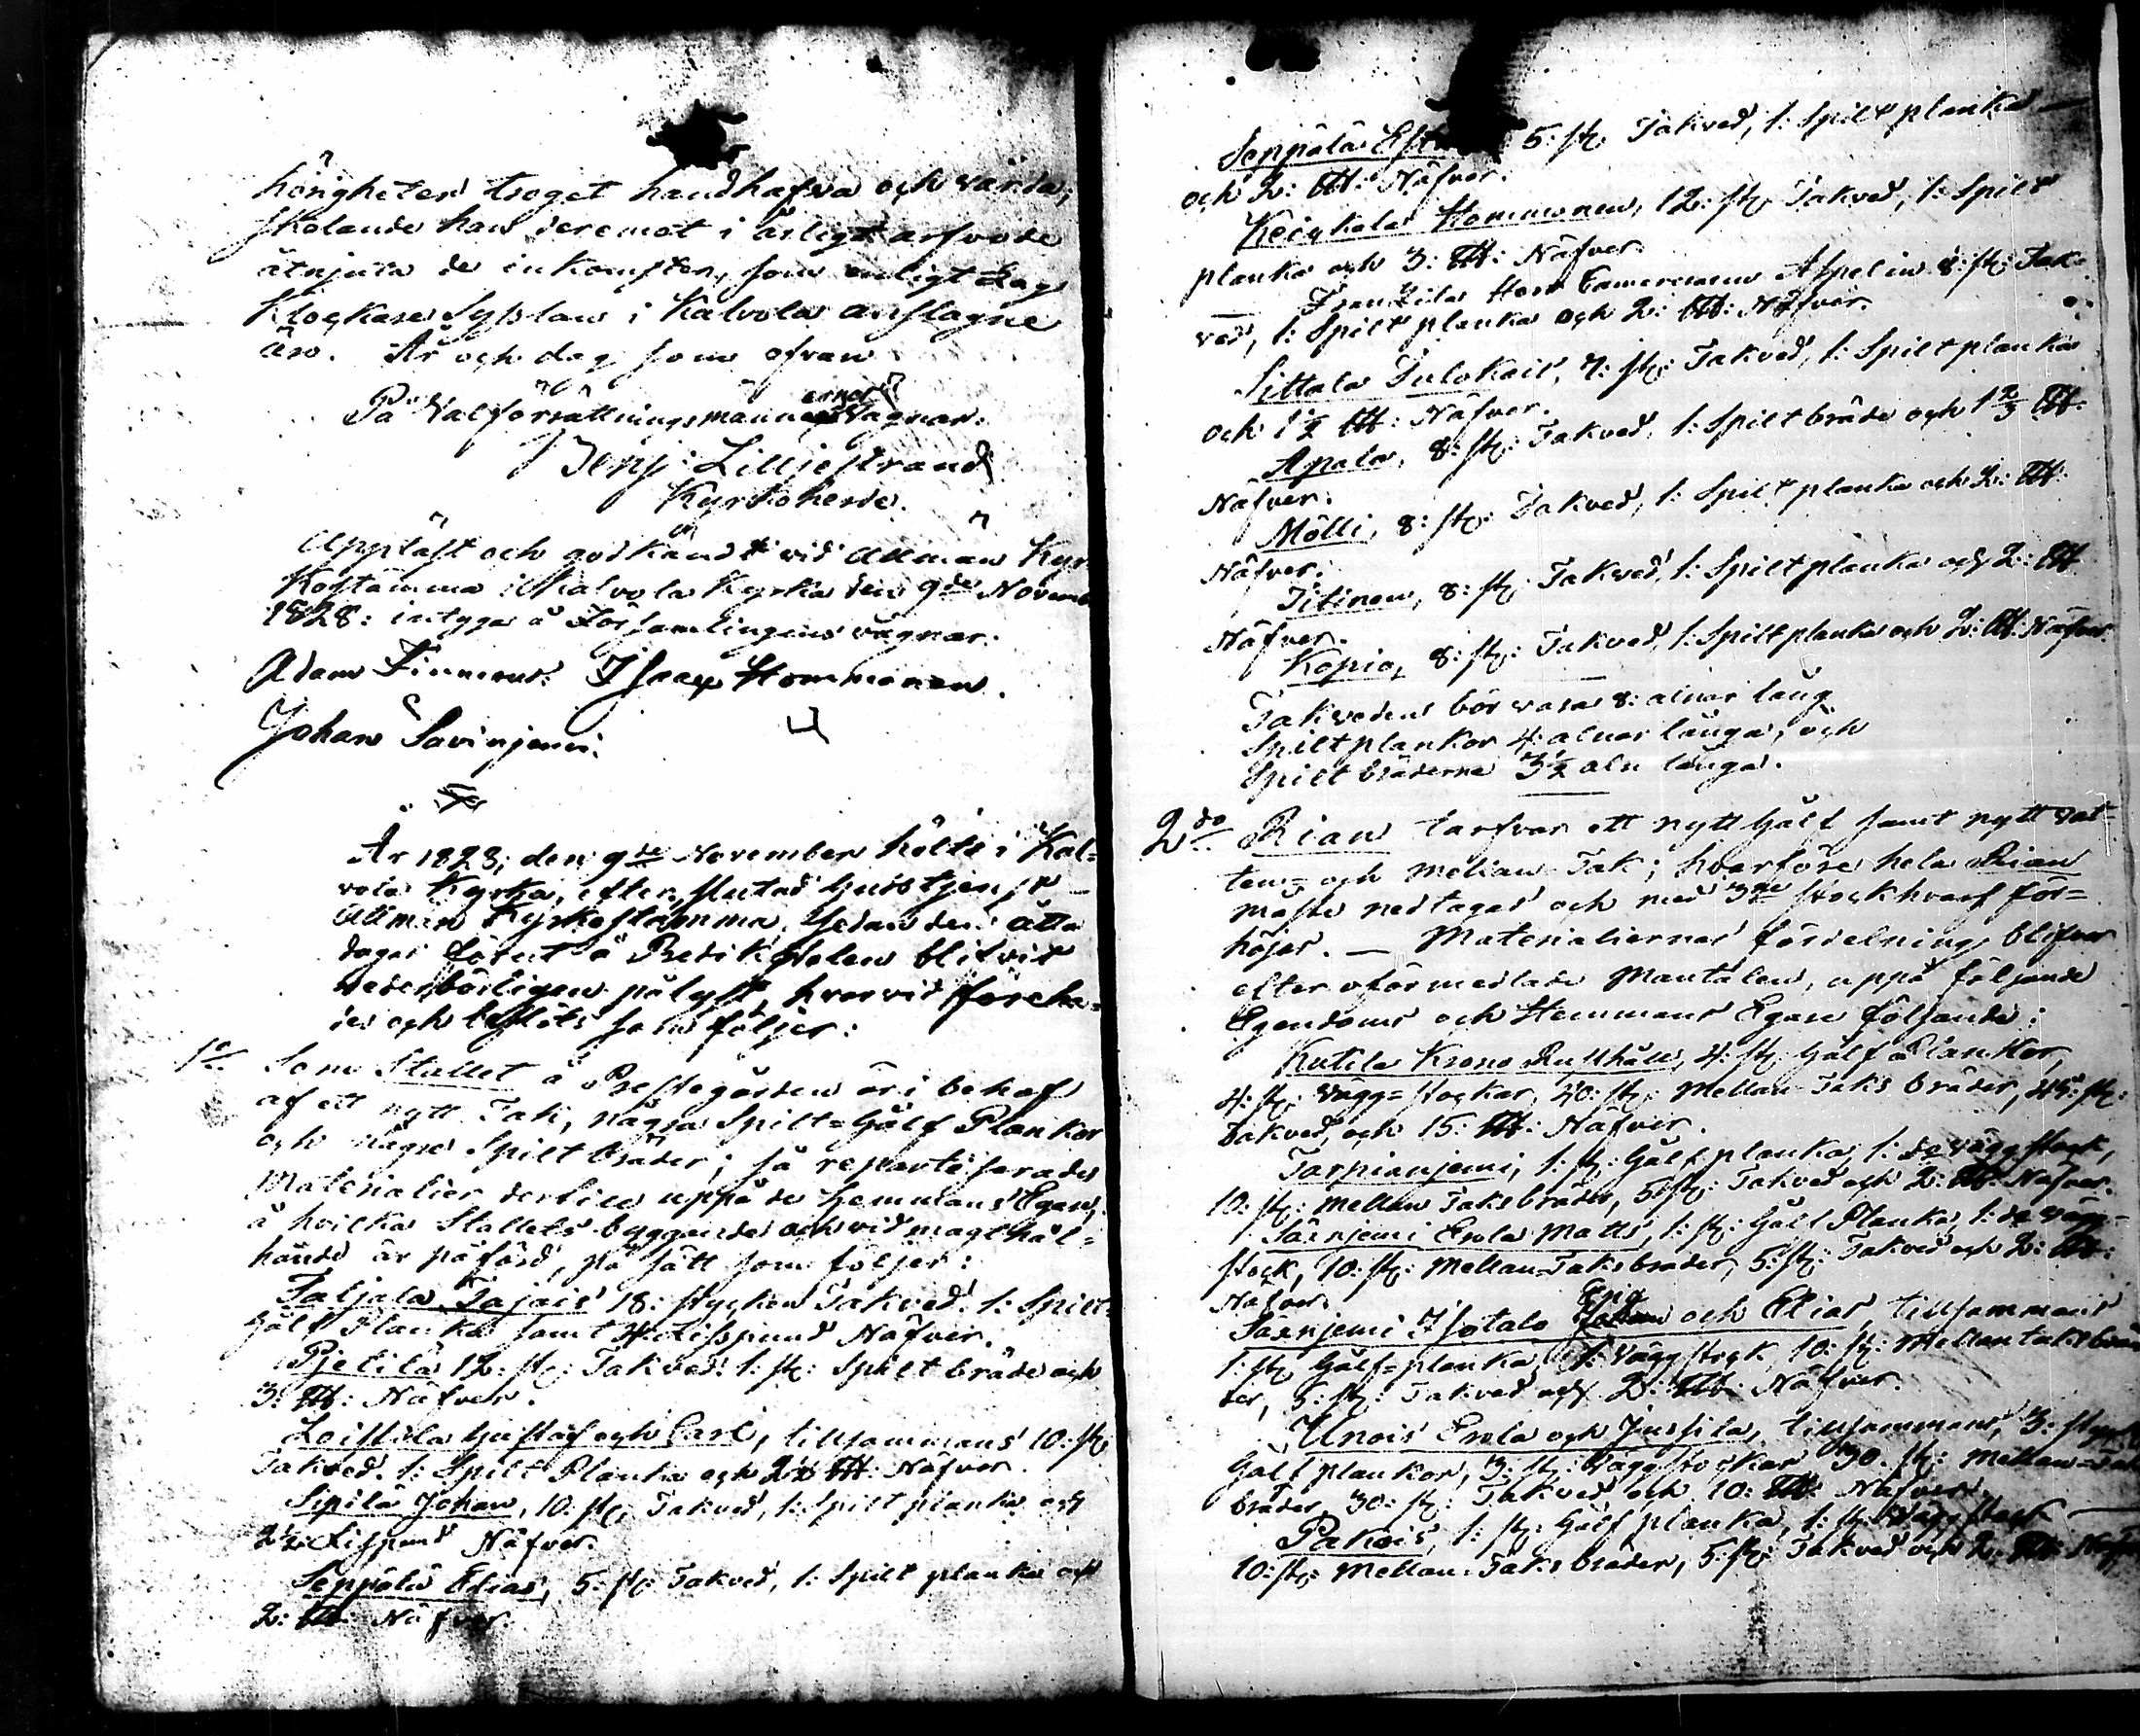 hörigheter troget handhafva och vårda,
skolande han deremot i årligt arfvode
åtnjuta de inkomster, som enligt Lag
Klockare Sysslan i Kalvola anslagne
äro. År och dag som ofvan
På Valförrättningsmännernes vägnar.
Benj: Lilljestrand
Kyrkoherde.
Uppläst och godkändt vid allmän Kyr
kostämma i Kalvola Kyrka den 9de Novemb
1828: intyga å Församlingens vägnar.
Adam Finnerus. Isaac Hommonen.
Johan Savinjemi.
År 1828, den 9de November hölts i Kal=
vola Kyrka, efter slutad Gudstjenst
allmän Kyrkostämma, sedan den åtta
dagar förut å Predikstolen blifvit
vederbörligen pålyst, hvarvid föreha=
des och beslöts som följer:
1o Som Stallet å Prestegården är i behof
af ett nytt Tak, några Spilt=Gålf Plankor
och några Spiltbräder; så reparterades
Materialier dertill uppå de Hemmans Egare,
å hvilka Stallets byggande och vid magt hål=
lande är påförd, på sätt som följer:
Taljala Tajais 18: stycken Takved. 1: Spilt=
Gålf Planka samt 4. Lispund Näfver.
Pjetilä 12. st: Takved. 1: st: Spilt bräde och
3: LH: Näfver.
Loistila Gustaf och Carl, tillsammans 10. st:
Takved. 1: Spilt Planka och 2½ LH: Näfver.
Sipilä Johan, 10. st: Takved, 1: Spilt planka och
2½: Lispund Näfver.
Seppälä Elias, 5: st: Takved, 1: Spilt planka och
2: LH: Näfver.
Seppälä 5: st: Takved, 1: Spilt planka
och 2: LH: Näfver.
Keickala Hommonen, 12: st: Takved, 1: Spilt
planka och 3: LH: Näfver.
Franzila Herr Cameraren Aspelin 8: st: Tak=
ved, 1: Spilt planka och 2: LH: Näfver.
Sittala Tulokais, 7: st: Takved, 1: Spilt planka
och 1½ LH: Näfver.
Apala, 8: st: Takved, 1: Spilt bräde och 1⅔ LH.
Näfver.
Mölli, 8: st: Takved, 1: Spilt planka och 2: LH:
Näfver.
Iitinen, 8: st: Takved, 1: Spilt planka och 2: LH
Näfver.
Kopio, 8: st: Takved, 1: Spilt planka och 2: LH: Näfver.
Takveden bör vara 8: alnar lång
Spiltplankor 4: alnar långa, och
Spilt bräderne 3½ aln långa.
2do Rian tarfvar ett nytt Gålf samt nytt vat=
ten= och mellan Tak; hvarföre hela Rian
måste nedtagas och med 3ne stockhvarf för=
höjas. — Materialiernas fördelning blifver
efter oförmedlade Mantalen, uppå följande
Egendoms och Hemmans Egare följande:
Kutila Krono Rusthåll, 4: st: Gålf Plankor,
4: st: Vägg=stockar, 40: st: Mellan Taks bräder, 45: st:
Takved, och 15: LH: Näfver.
Tarpianjemi, 1: st: Gålf planka, 1: do väggstock,
10: st: Mellan Taksbräder, 5: st: Takved och 2: LH: Näfver.
Särnjemi Erola Matts, 1: st: Gålf Planka, 1: do vägg=
stock, 10: st: Mellan=Taksbräder, 5: st: Takved och 2: LH:
Näfver.
Särnjemi Isotalo Enq och Elias, tillsammans
1: st: Gålf=planka, 1: Väggstock, 10: st: Mellantaks brä
der, 5: st: Takved och 2: LH: Näfver.
Unois Erola och Jussila, tillsammans, 3: styck
Gålf plankor, 3. st: Väggstockar 30. st: Mellan=Tak
bräder, 30: st: Takved och 10: LH: Näfver.
Pakais, 1: st: Gålf planka, 1: st: Väggstock
10: st: Mellan Taks bräder, 5: st: Takved och 2: LH: Näfver